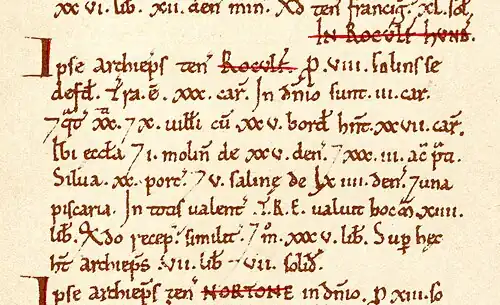 xx vi. lib. xii. den min. Qđ teñ francig. XL. sol
IN ROCVLF HVND.
Ipse archieps teñ ROCVLF. ꝑ. VIII. solins se
defđ. Tra. ē. xxx. car. In dñio sunt. iii. car.
⁊ qͭ xx. ⁊ x. uilli cū xx v. borđ hñt. xx vii. car.
Ibi eccła ⁊ i. moliñ de xx v. deñ. ⁊ xxx. iii. ac̄ p̄ti.
Silua. xx. porc. ⁊ v. saline de lx iiii. deñ. ⁊ una
piscaria. In totis ualent̄. T.R.E. ualuit hoc m̄. xiiii.
lib. Qđo recep. similit. ⁊ m̊. xxx v. lib. Sup hęc
hт archieps. vii. lib ⁊ vii. soliđ.
Ipse archieps teñ NORTONE in dñio. ꝑ XIII. so